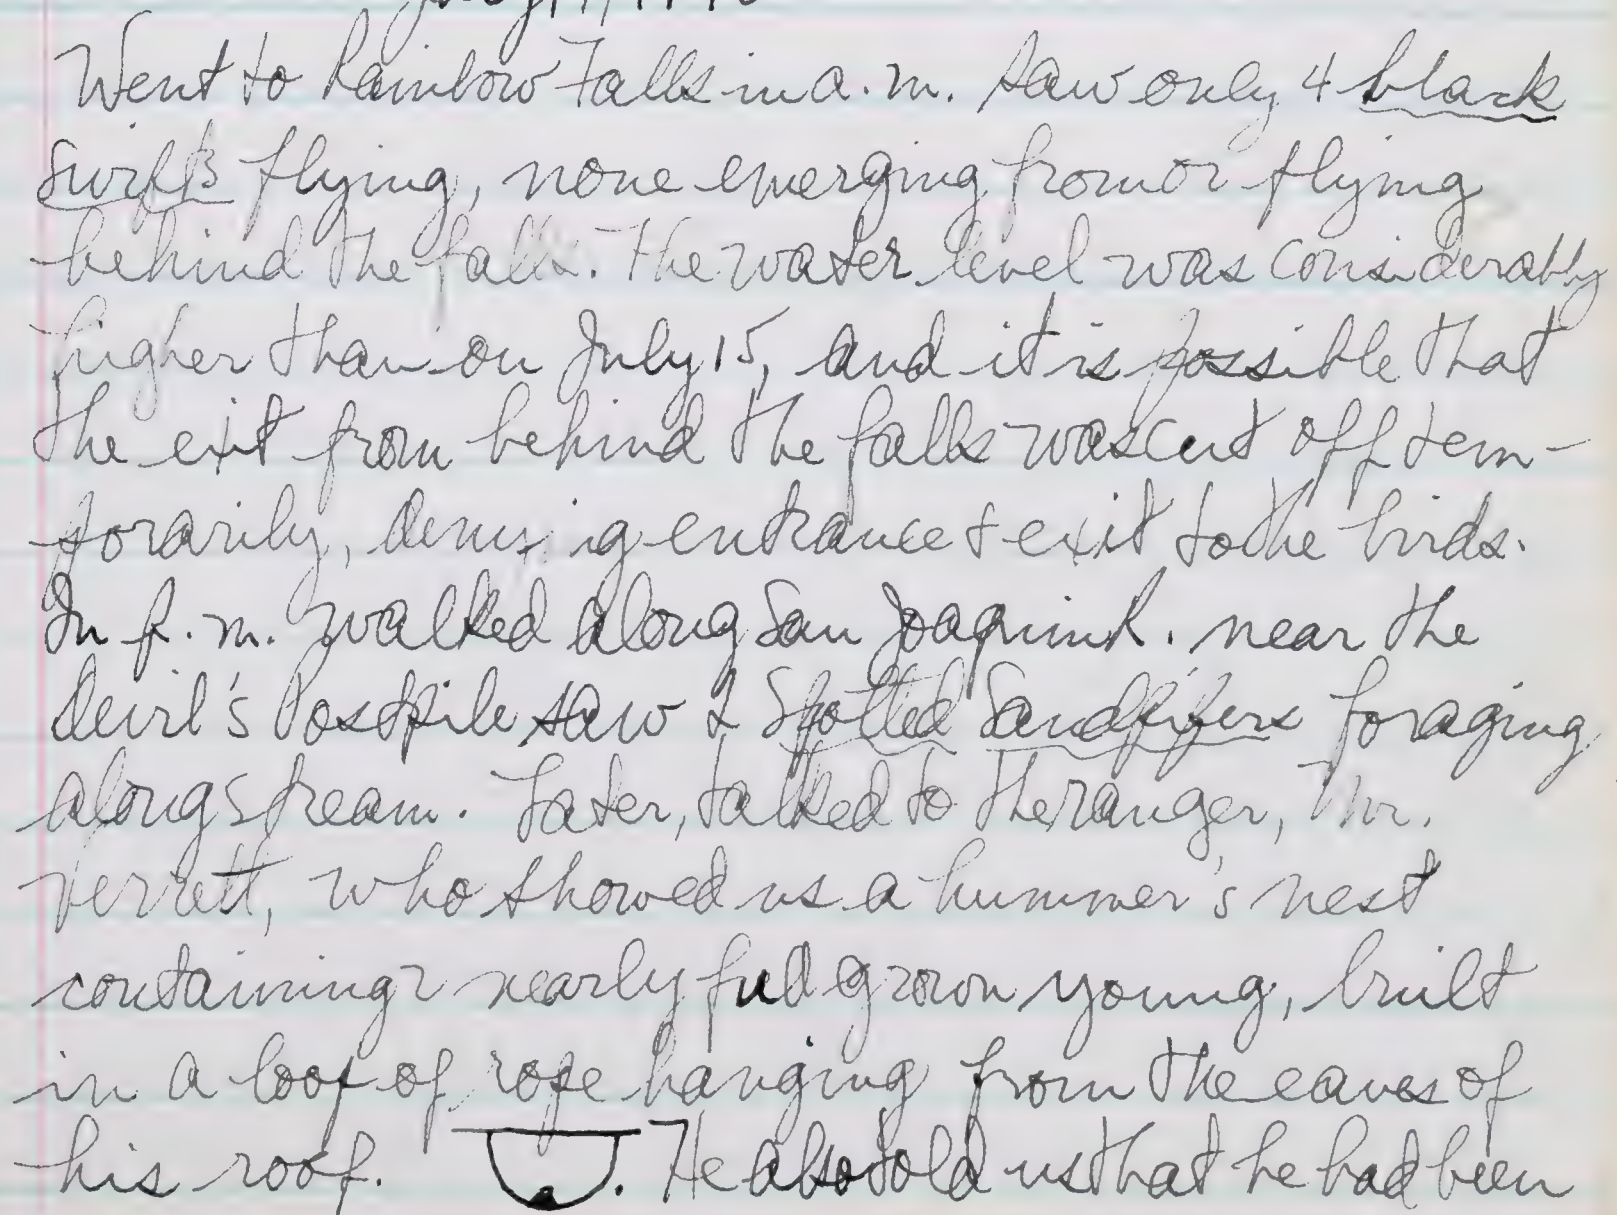 Went to Rainbow Falls in a.m. Saw only 4 black
swifts flying, none emerging from or flying
behind the falls. The water level was considerably
higher than on July 15, and it is possible that
the exit from behind the falls was cut off tem-
porarily, denying entrance & exit to the birds.
In p.m. walked along San Joaquin R. near the
Devil's Postpile saw 2 Spotted Sandpipers foraging
along stream. Later, talked to the ranger, Mr.
Verrett, who showed us a hummer's nest
containing 2 nearly full grown young, built
in a loop of rope hanging from the eaves of
his roof. . He also told us that he had been